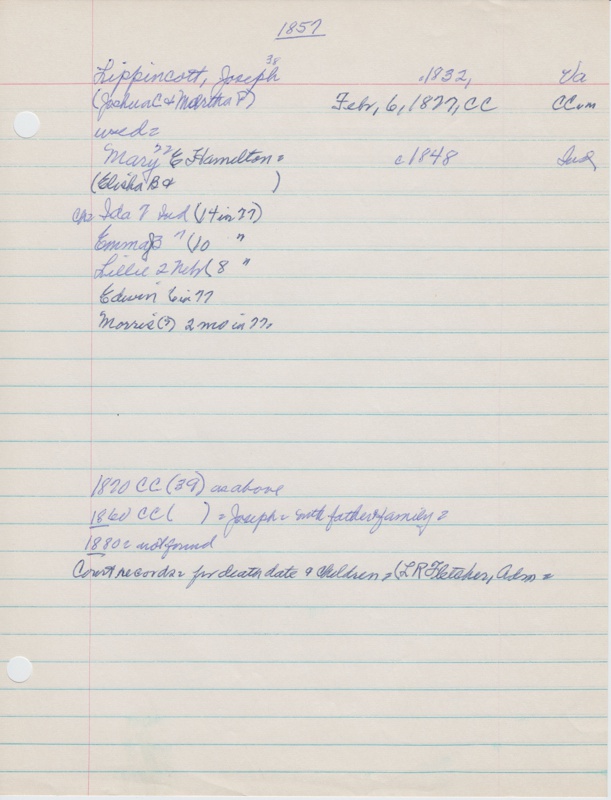 1857
Lippincott, Joseph 38 c1832, Va
(Joshua C & Martha P) Febr, 6, 1877, CC CCom
wed=
Mary 22 E Hamilton= c1848 Ind
(Elisha B & )
Ida 7 Ind (14 in 77)
Emma B " (10 "
Lillie 2 Nebr (8 "
Edwin 6 in 77
Morris (?) 2 mo in 77.
1870 CC (39) as above
1860 CC ( ) = Joseph = with father & family =
1880 = not found
Court records = for death date & children = (L R Fletcher, Adm =